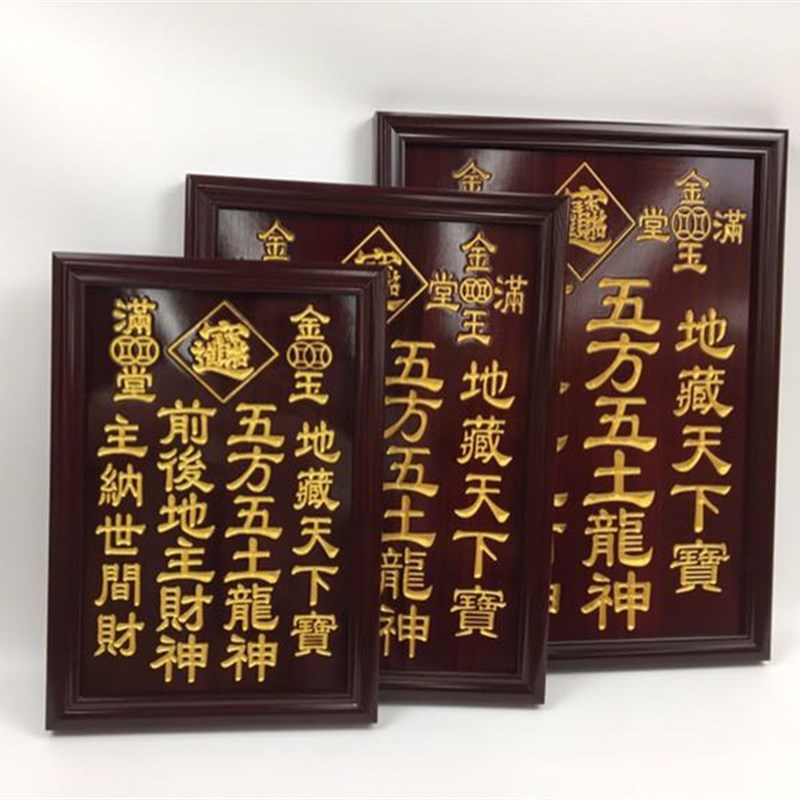 金玉
招財進寶
滿堂
地藏天下寶
五方五土龍神
前後地主財神
主納世間財
金玉滿堂
招財進寶
金
地藏天下寶
五方五土龍神
金玉滿堂
招財進寶
金
地藏天下寶
五方五土龍神